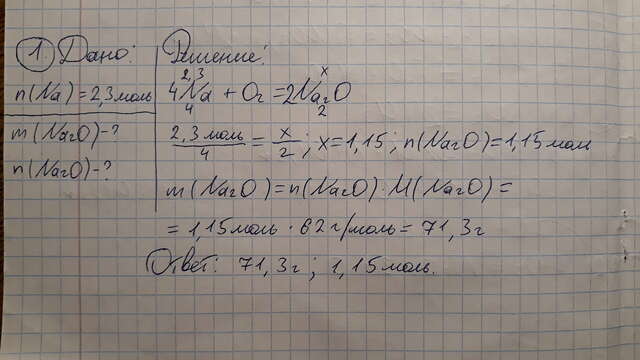 1. Дано:
n(Na) = 2,3 моль
m(Na2O) - ?
n(Na2O) - ?
Решение:
2,3 x
4Na + O2 = 2Na2O
4 2
2,3 моль / 4 = x / 2 ; x = 1,15 ; n(Na2O) = 1,15 моль
m(Na2O) = n(Na2O) · M(Na2O) =
= 1,15 моль · 62 г/моль = 71,3 г
Ответ: 71,3 г ; 1,15 моль.